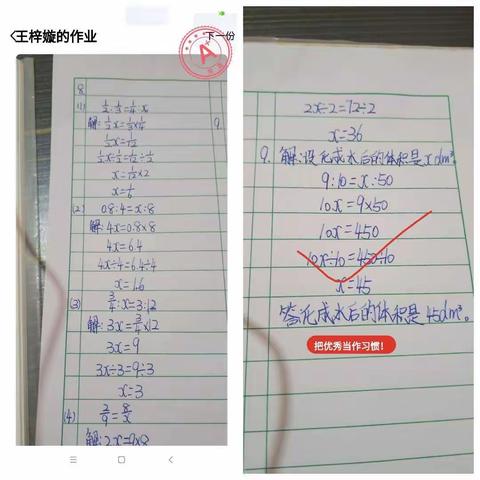 王梓嫙的作业
下一份
A
8.
(1) 1/2:1/3=1/4:x
解:1/2x=1/3×1/4
1/2x=1/12
1/2x÷1/2=1/12÷1/2
x=1/12×2
x=1/6
(2) 0.8:4=x:8
解:4x=0.8×8
4x=6.4
4x÷4=6.4÷4
x=1.6
(3) 3/4:x=3:12
解:3x=3/4×12
3x=9
3x÷3=9÷3
x=3
(4) 2/9=8/x
解:2x=9×8
9.
2x÷2=72÷2
x=36
9. 解:设化成水后的体积是xdm³
9:10=x:50
10x=9×50
10x=450
10x÷10=450÷10
x=45
答:化成水后的体积是45dm³。
把优秀当作习惯!